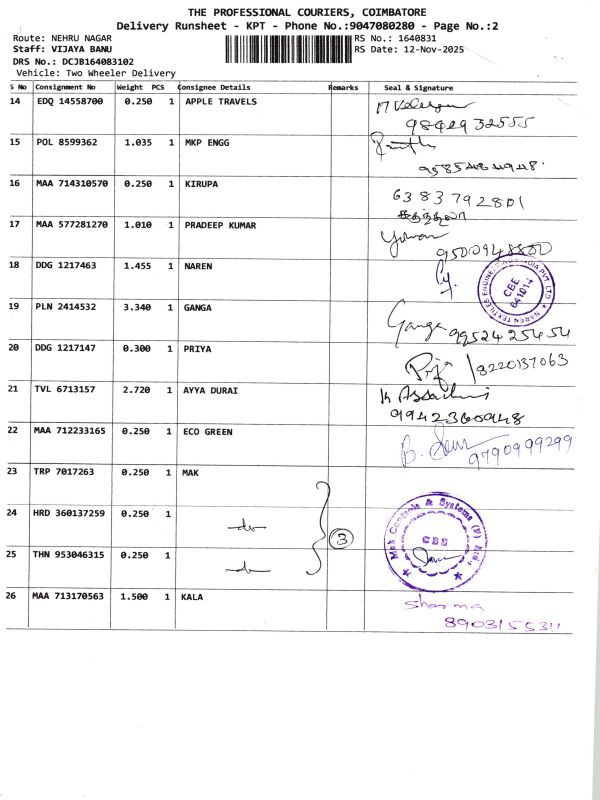 THE PROFESSIONAL COURIERS, COIMBATORE
Delivery Runsheet - KPT - Phone No.:9047080280 - Page No.:2
Route: NEHRU NAGAR RS No.: 1640831
Staff: VIJAYA BANU RS Date: 12-Nov-2025
DRS No.: DCJB164083102
Vehicle: Two Wheeler Delivery
S No Consignment No Weight PCS Consignee Details Remarks Seal & Signature
14 EDQ 14558700 0.250 1 APPLE TRAVELS
9842932555
15 POL 8599362 1.035 1 MKP ENGG
9585484948
16 MAA 714310570 0.250 1 KIRUPA
6383792801
17 MAA 577281270 1.010 1 PRADEEP KUMAR
9500948880
18 DDG 1217463 1.455 1 NAREN
NAREN TEXTILE ENGINEERING INDIA PVT. LTD
CBE
641014
19 PLN 2414532 3.340 1 GANGA
Ganga 9952425454
20 DDG 1217147 0.300 1 PRIYA
8220137063
21 TVL 6713157 2.720 1 AYYA DURAI
9942360948
22 MAA 712233165 0.250 1 ECO GREEN
9790999299
23 TRP 7017263 0.250 1 MAK
24 HRD 360137259 0.250 1 -do-
3
25 THN 953046315 0.250 1 -do-
Mak Controls & Systems (P) Ltd.,
CBE
26 MAA 713170563 1.500 1 KALA
Sharma
8903155311